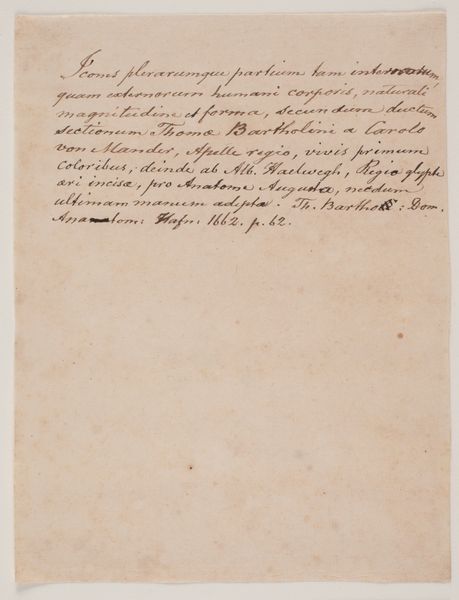 Icones plerarumque partium tam internarum,
quam externorum humani corporis, naturali
magnitudine et forma, secundum ductum
sectionum Thomæ Bartholini a Carolo
von Mander, Apelle regio, vivis primum
coloribus, deinde ab Alb. Haelwegh, Regio glypte
æri incisæ, pro Anatome Augusta, necdum
ultimam manum adeptæ. Th. Barthol: Dom.
Anatom: Hafn: 1662. p. 62.